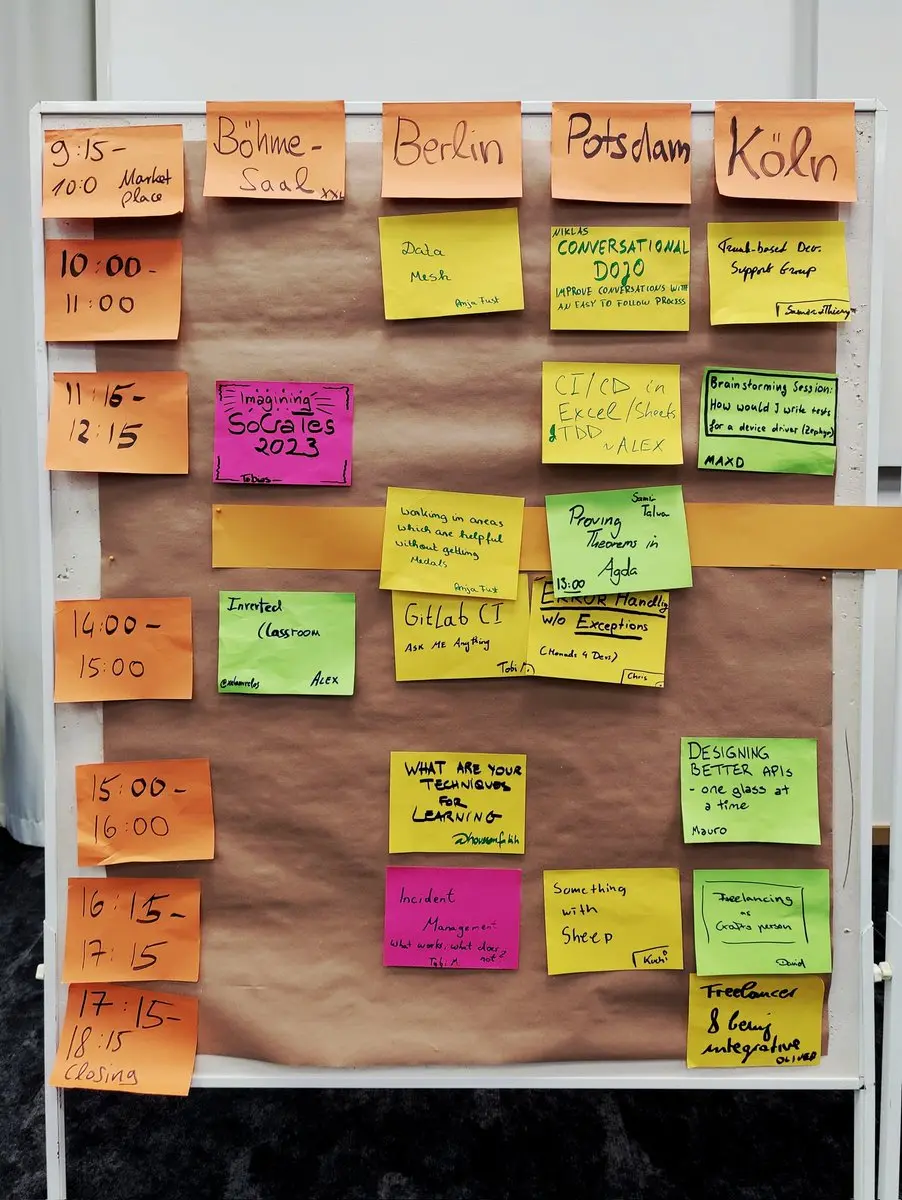 9:15-
10:0 Market
place
Böhme-
Saal XXL
Berlin
Potsdam
Köln
10:00-
11:00
Data
Mesh
Anja Fust
NIKLAS
CONVERSATIONAL
DOJO
IMPROVE CONVERSATIONS WITH
AN EASY TO FOLLOW PROCESS
Trunk-based Dev.
Support Group
11:15-
12:15
Imagining
SoCraTes
2023
Tobias
CI/CD in
Excel/Sheets
& TDD
~ ALEX
Brainstorming Session:
How would I write tests
for a device driver (Zephyr)
MAXD
Working in areas
which are helpful
without getting
Medals
Anja Fust
Samir
Talwar
Proving
Theorems in
Agda
13:00
14:00-
15:00
Inverted
Classroom
ALEX
GitLab CI
ASK ME Anything
Tobi M.
ERROR Handling
w/o Exceptions
(Monads 4 Devs)
Chris
15:00-
16:00
WHAT ARE YOUR
TECHNIQUES
FOR
LEARNING
DESIGNING
BETTER APIs
- one glass at
a time
Mauro
16:15-
17:15
Incident
Management
What works, what does
not?
Tobi M.
Something
with
Sheep
Freelancing
as
Crafts person
David
17:15-
18:15
Closing
Freelancer
& being
integrative
OLIVER